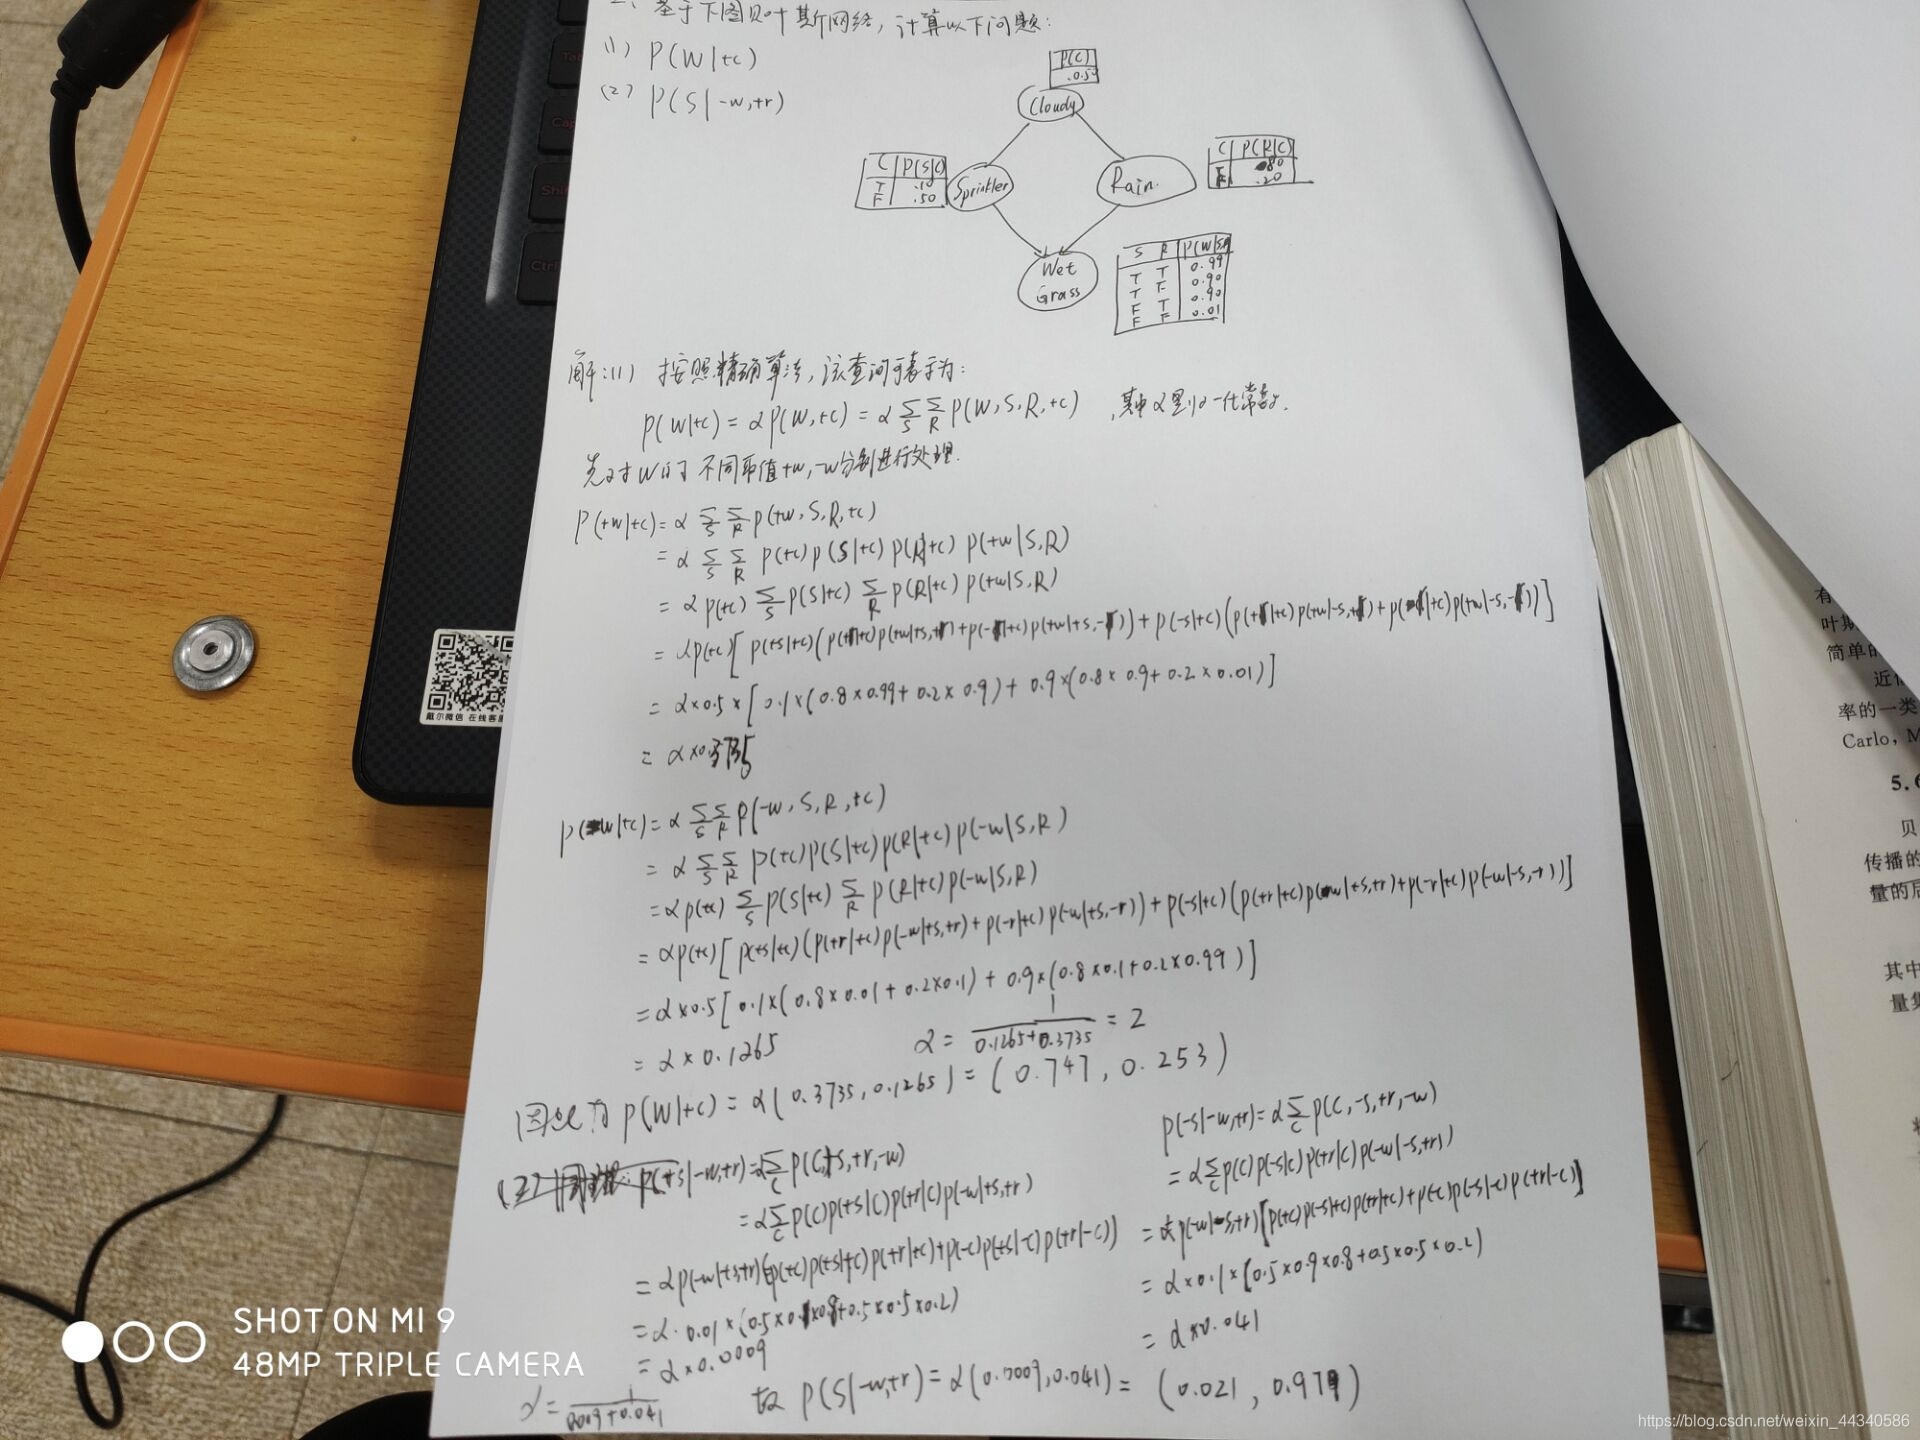 二、基于下图贝叶斯网络，计算以下问题：
(1) P(W|+c)
(2) P(S|-w,+r)
P(C)
.05
Cloudy
C P(S|C)
T .10
F .50
Sprinkler
Rain.
C P(R|C)
.80
F .20
Wet
Grass
S R P(W|S,R)
T T 0.99
T F 0.90
F T 0.90
F F 0.01
解：(1) 按照精确算法，该查询可表示为：
P(W|+c) = αP(W,+c) = α Σ_S Σ_R P(W,S,R,+c) ,其中α是归一化常数.
先对W的不同取值+w,-w分别进行处理.
P(+w|+c) = α Σ_S Σ_R P(+w,S,R,+c)
= α Σ_S Σ_R P(+c)P(S|+c)P(R|+c)P(+w|S,R)
= αP(+c) Σ_S P(S|+c) Σ_R P(R|+c)P(+w|S,R)
= αP(+c)[P(+s|+c)(P(+r|+c)P(+w|+s,+r)+P(-r|+c)P(+w|+s,-r))+P(-s|+c)(P(+r|+c)P(+w|-s,+r)+P(-r|+c)P(+w|-s,-r))]
= α×0.5×[0.1×(0.8×0.99+0.2×0.9)+0.9×(0.8×0.9+0.2×0.01)]
= α×0.3735
P(-w|+c) = α Σ_S Σ_R P(-w,S,R,+c)
= α Σ_S Σ_R P(+c)P(S|+c)P(R|+c)P(-w|S,R)
= αP(+c) Σ_S P(S|+c) Σ_R P(R|+c)P(-w|S,R)
= αP(+c)[P(+s|+c)(P(+r|+c)P(-w|+s,+r)+P(-r|+c)P(-w|+s,-r))+P(-s|+c)(P(+r|+c)P(-w|+s,+r)+P(-r|+c)P(-w|-s,-r))]
= α×0.5[0.1×(0.8×0.01+0.2×0.1)+0.9×(0.8×0.1+0.2×0.99)]
= α×0.1265
α = 1/(0.1265+0.3735) = 2
因此有 P(W|+c) = α(0.3735,0.1265) = (0.747,0.253)
(2) P(+s|-w,+r) = α Σ_C P(C,+s,+r,-w)
= α Σ_C P(C)P(+s|C)P(+r|C)P(-w|+s,+r)
= αP(-w|+s,+r)(P(+c)P(+s|+c)P(+r|+c)+P(-c)P(+s|-c)P(+r|-c))
= α·0.01×(0.5×0.1×0.8+0.5×0.5×0.2)
= α×0.0009
α = 1/(0.0009+0.041)
P(-s|-w,+r) = α Σ_C P(C,-s,+r,-w)
= α Σ_C P(C)P(-s|C)P(+r|C)P(-w|-s,+r)
= αP(-w|-s,+r)[P(+c)P(-s|+c)P(+r|+c)+P(-c)P(-s|-c)P(+r|-c)]
= α×0.1×[0.5×0.9×0.8+0.5×0.5×0.2)
= α×0.041
故 P(S|-w,+r) = α(0.0009,0.041) = (0.021,0.979)
戴尔微信 在线客服
Tab
Shift
Ctrl
叶斯
简单的
近似
率的一类
Carlo, M
5.6
贝
传播的
量的后
其中
量集
SHOT ON MI 9
48MP TRIPLE CAMERA
https://blog.csdn.net/weixin_44340586